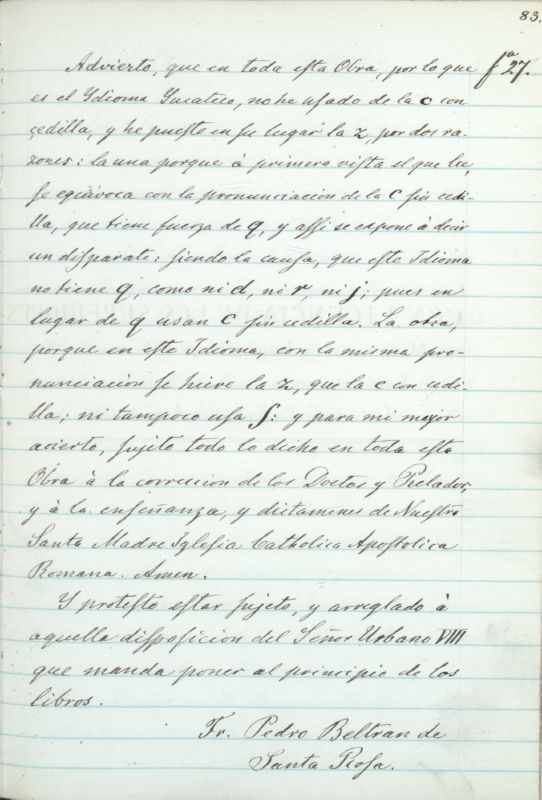 83.
Advierto, que en toda esta Obra, por lo que fª 27.
es el Ydioma Yucateco, no he usado de la c con
çedilla, y he puesto en su lugar la z, por dos ra-
zones: la una porque à primera vista el que lee,
se equivoca con la pronunciacion de la C sin cedi-
lla, que tiene fuerza de q, y assi se expone à decir
un disparate: siendo la causa, que este Idioma
no tiene q, como ni d, ni r, ni j; pues en
lugar de q usan C sin cedilla. La otra,
porque en este Idioma, con la misma pro-
nunciacion se hiere la z, que la c con cedi-
lla; ni tampoco usa ſ: y para mi mejor
acierto, sujeto todo lo dicho en toda esta
Obra à la correccion de los Doctos y Prelados,
y à la enseñanza, y dictamenes de Nuestra
Santa Madre Iglesia Catholica Apostolica
Romana. Amen.
Y protesto estar sujeto, y arreglado à
aquella disposicion del Señor Urbano VIII
que manda poner al principio de los
libros.
Fr. Pedro Beltran de
Santa Rosa.